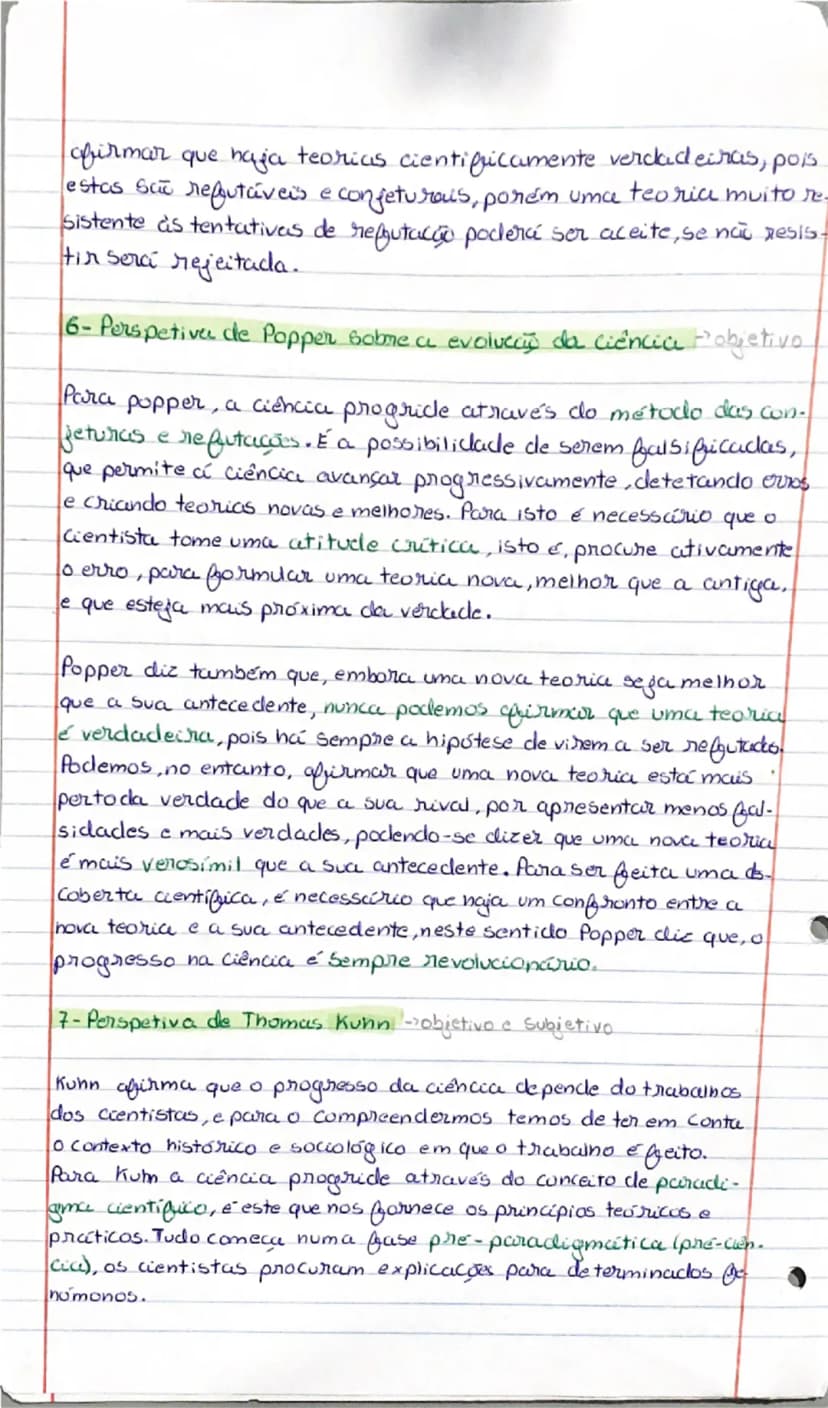 afirmar que haja teorias cientificamente verdadeiras, pois
estas são refutáveis e conjeturais, porém uma teoria muito re-
sistente às tentativas de refutação poderá ser aceite, se não resis-
tir será rejeitada.
6- Perspetiva de Popper sobre a evolução da ciência → objetivo
Para popper, a ciência progride através do método das con-
jeturas e refutações. É a possibilidade de serem falsificadas,
que permite á ciência avançar progressivamente, detetando erros
e criando teorias novas e melhores. Para isto é necessário que o
cientista tome uma atitude crítica, isto é, procure ativamente
o erro, para formular uma teoria nova, melhor que a antiga,
e que esteja mais próxima da verdade.
Popper diz também que, embora uma nova teoria seja melhor
que a sua antecedente, nunca podemos afirmar que uma teoria
é verdadeira, pois há sempre a hipótese de virem a ser refutadas.
Podemos, no entanto, afirmar que uma nova teoria está mais
perto da verdade do que a sua rival, por apresentar menos fal-
sidades e mais verdades, podendo-se dizer que uma nova teoria
é mais verosímil que a sua antecedente. Para ser feita uma des-
coberta científica, é necessário que haja um confronto entre a
nova teoria e a sua antecedente, neste sentido Popper diz que, o
progresso na ciência é sempre revolucionário.
7- Perspetiva de Thomas Kuhn → objetivo e subjetivo
Kuhn afirma que o progresso da ciência depende do trabalhos
dos cientistas, e para o compreendermos temos de ter em conta
o contexto histórico e sociológico em que o trabalho é feito.
Para Kuhn a ciência progride através do conceito de paradi-
gma científico, é este que nos fornece os princípios teóricos e
práticos. Tudo começa numa fase pré-paradigmática (pré-ciên-
cia), os cientistas procuram explicações para determinados fe-
nómonos.